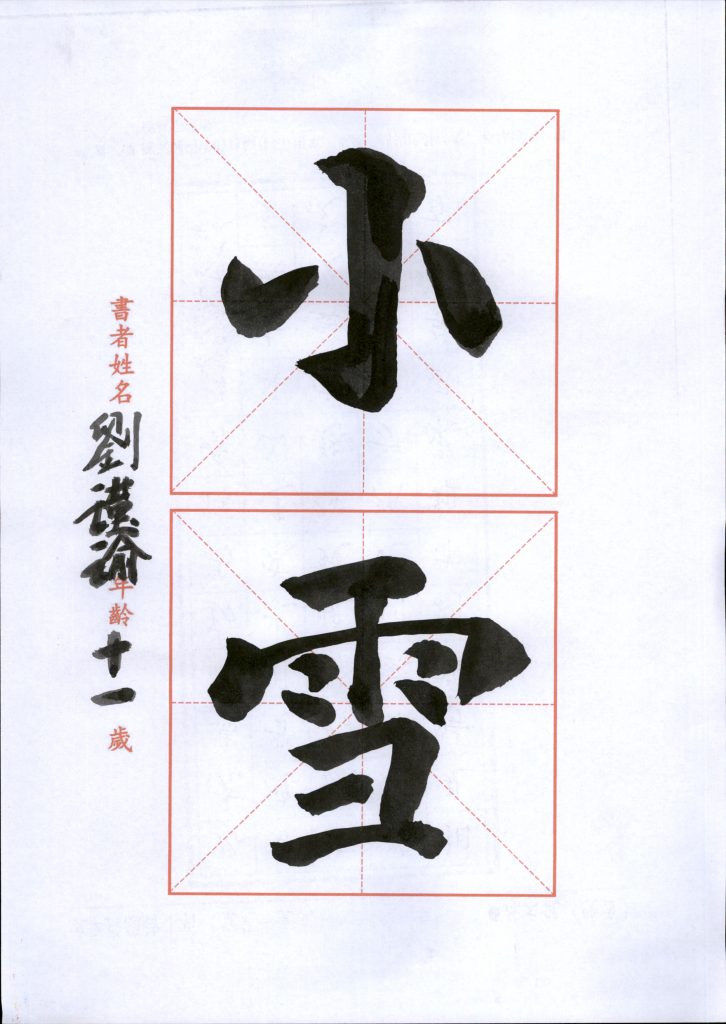 小雪
書者姓名 劉謹瑜 年齡 十一 歲